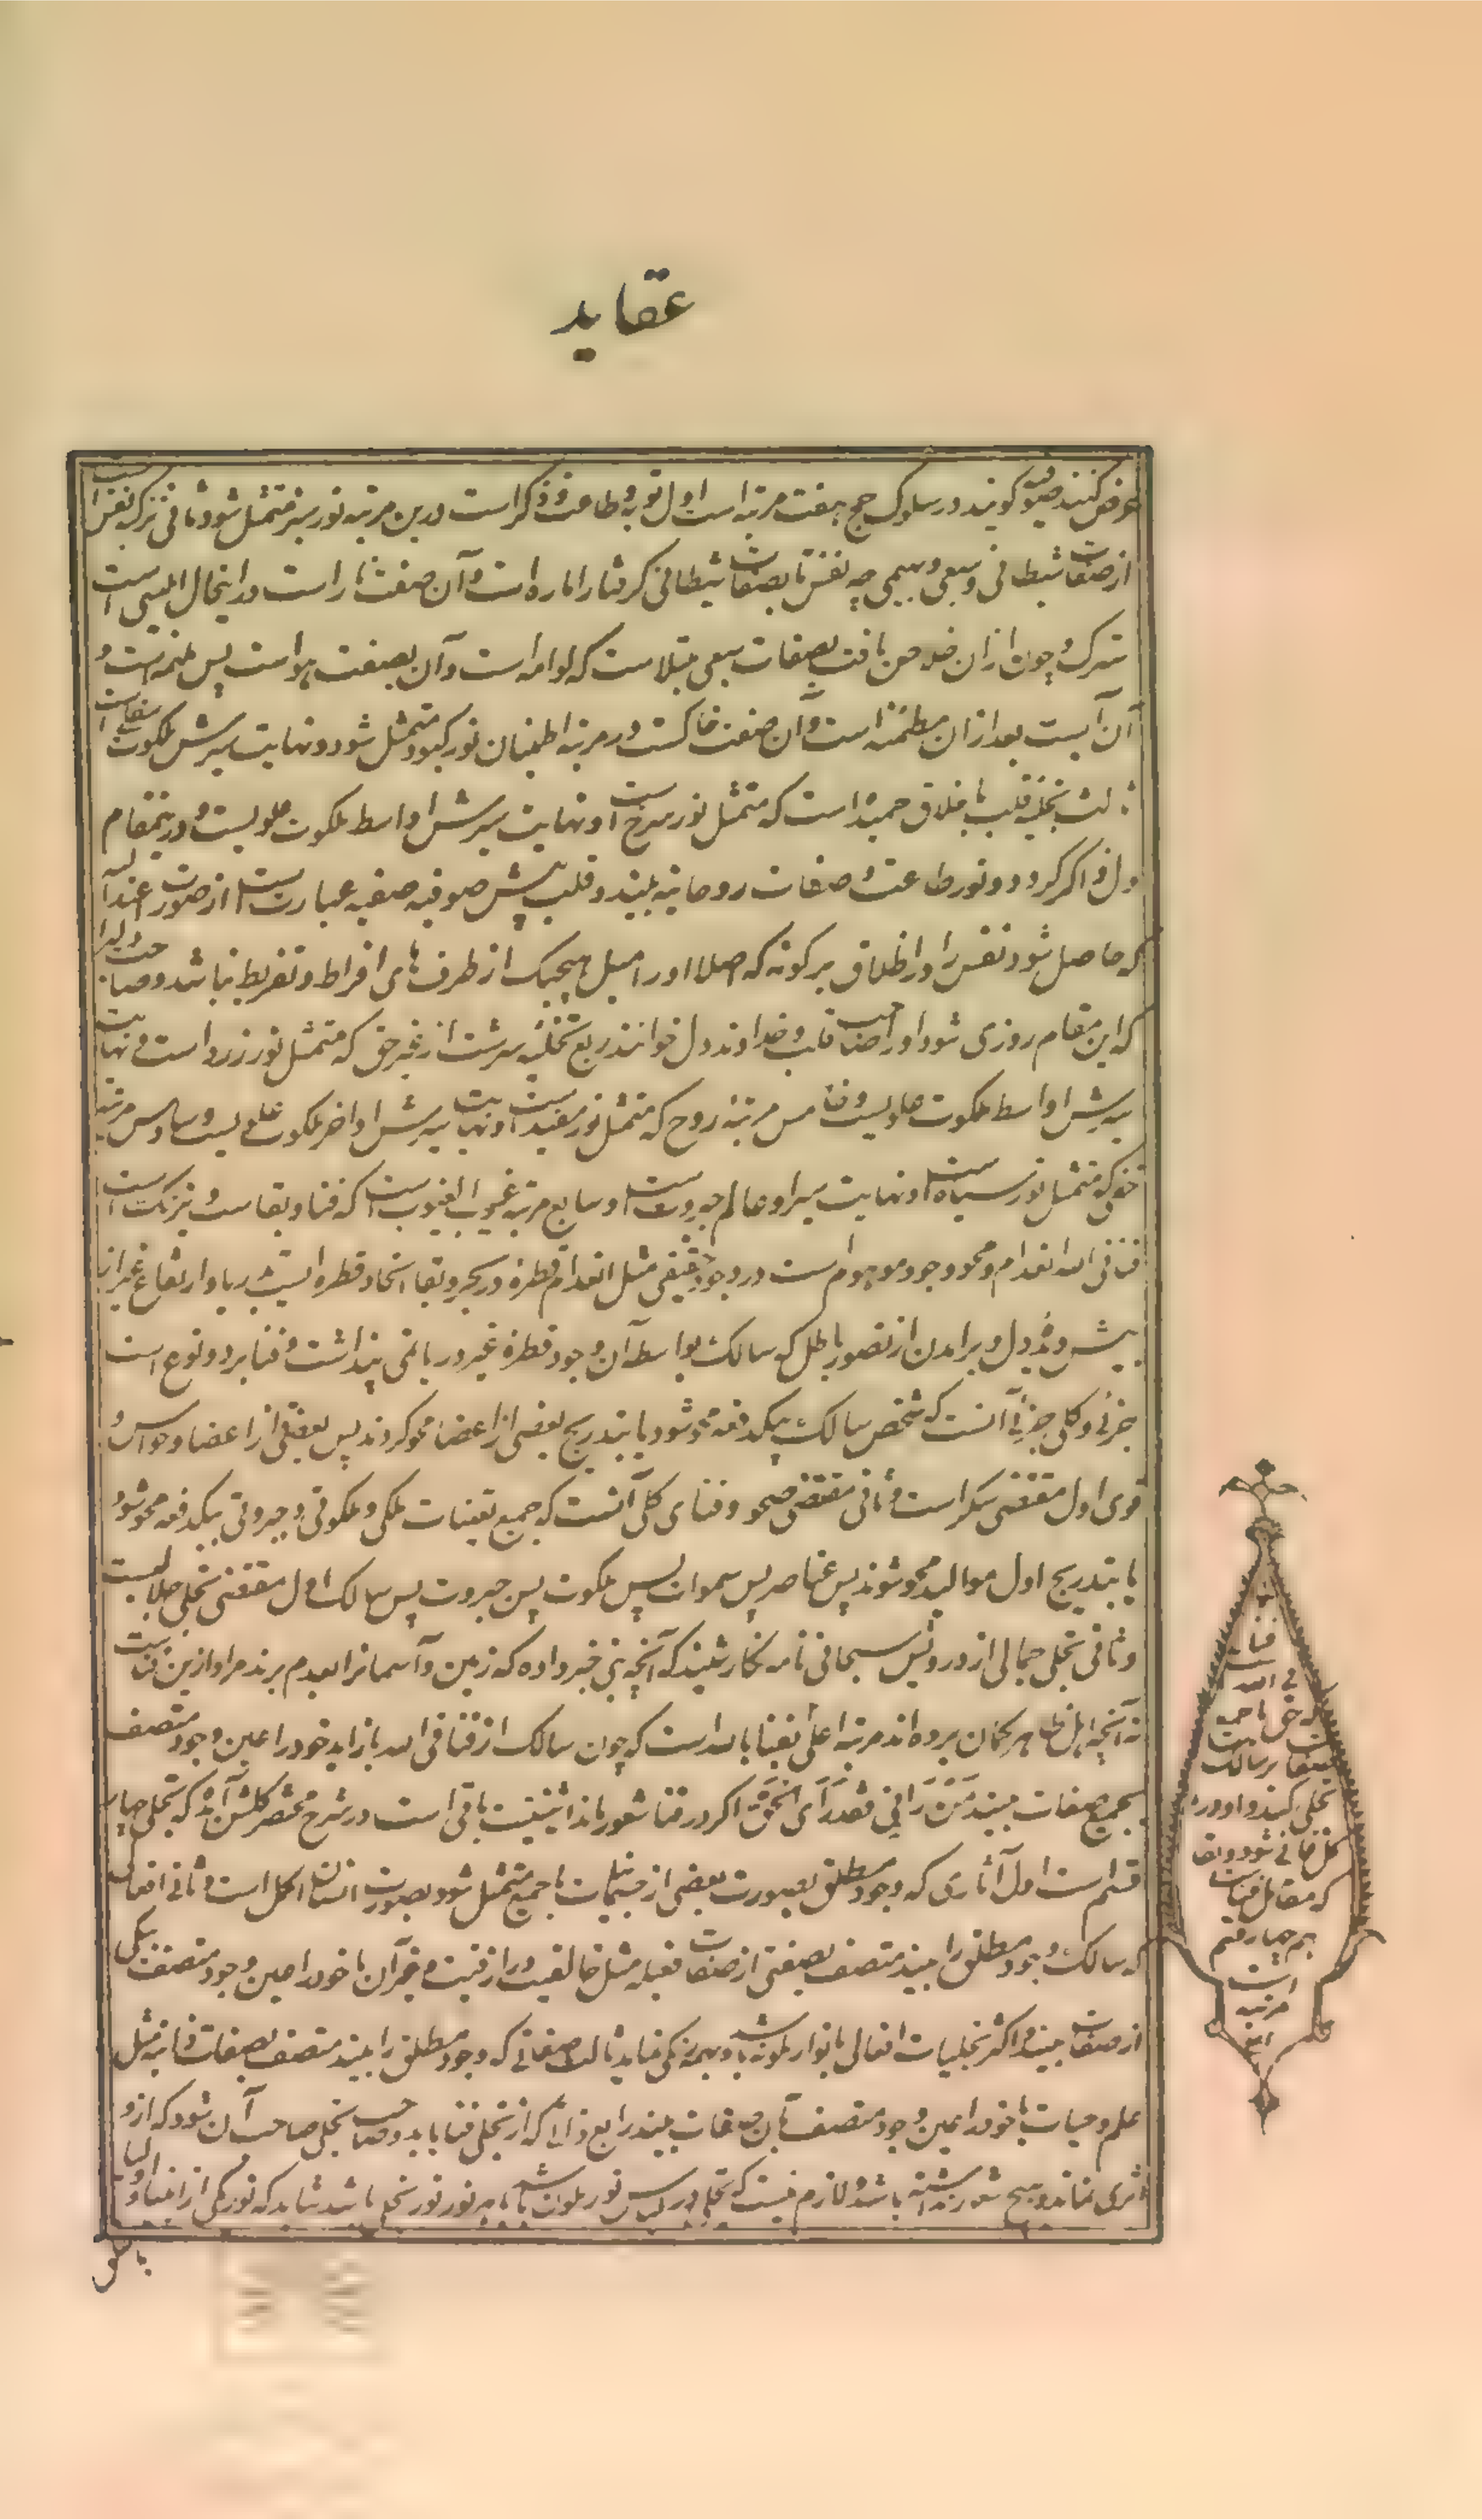 عقاید
عرض کنند صوفیه گویند در سلوک جمع هفت مرتبه است اول توبه و طاعت و ذکر است درین مرتبه نور سبز متمثل شود ثانی تزکیه نفس است
از صفات شیطانی و سبعی و بهیمی چه نفس تا بصفات شیطانی گرفتار اماره است و آن صفت نار است در اینحال ابلیس است
سترک و چون ازان خلاص یافت بصفات سبعی مبتلاست که لوامه است و آن بصفت هواست پس ملهمه است و
آن آبیست بعد ازان مطمئنه است و آن صفت خاکست در مرتبه اطمینان نور کبود متمثل شود و نهایت سیرش ملکوت سفلی است
ثالث تجلیه قلب باخلاق حمیده است که متمثل نور سرخ است و نهایت سیرش اواسط ملکوت علویست و درینمقام
دل ذاکر گردد و نور طاعت و صفات روحانیه بیند و قلب پیش صوفیه صفیه عبارت است از صورت اعتدالیه
که حاصل شود نفس را در اخلاق برگونه که اصلا او را میل بهیچیک از طرف های افراط و تفریط نباشد و صاحب دلی را
که این مقام روزی شود او را صاحب قلب و خداوند دل خوانند رابع تخلیه سرشت از غیر حق که متمثل نور زرد است و نهایت
سیرش اواسط ملکوت علویست و خامس مرتبه روح که متمثل نور سفید است و نهایت سیرش اواخر ملکوت علویست و سادس مرتبه
خفی که متمثل نور سیاه است و نهایت سیر او عالم جبروت است و سابع مرتبه غیب الغیوب است که فنا و بقاست و بیرنگ است
فنا فی الله انعدام و محو وجود موهوم است در وجود حقیقی مثل انعدام قطره در بحر و بقا اتحاد قطره ایست بدریا و ارتفاع غیر از
پیش دیده دل و برامدن از تصور باطل که سالک بواسطه آن وجود قطره غیر دریا می پنداشت و فنا بر دو نوع است
جزئی و کلی جزئی آنست که شخص سالک بیکدفعه محو شود یا بتدریج بعضی از اعضا محو گردند پس بعضی از اعضا و حواس و
قوی اول مقتضی سکر است و ثانی مقتضی صحو و فنای کلی آنست که جمیع تعینات ملکی و ملکوتی و جبروتی بیکدفعه محو شود
یا بتدریج اول موالید محو شوند پس عناصر پس سموات پس ملکوت پس جبروت پس سالک اول مقتضی تجلی جلالیست
و ثانی تجلی جمالی از درویش سبحانی نامه نگار شنید که آنچه نبی خبر داده که زمین و آسمانرا بعدم برند مراد ازین فناست
نه آنچه اهل ظاهر گمان برده اند مرتبه اعلی بفنا بالله است که چون سالک از فنا فی الله باز اید خود را عین وجود متصف
بجمیع صفات بیند مَنْ رَانِی فَقَدْ رَأَی الْحَقَّ اگر در فنا شعور باند اثنینیت باقی است در شرح مختصر گلشن آمده که تجلی چهار
قسم است اول آثاری که وجود مطلق بصورت بعضی از جسمانیات یا جمیع متمثل شود بصورت انسان اکمل است و ثانی افعالی
که سالک وجود مطلق را بیند متصف بصفتی از صفات فعلیه مثل خالقیت و رازقیت و غیر آن یا خود را عین وجود متصف بیکی
از صفات بیند و اکثر تجلیات افعالی بانوار ملونه باشد و بهمه رنگی نماید ثالث صفاتی که وجود مطلق را بیند متصف بصفات ذاتیه مثل
علم و حیات یا خود را عین وجود متصف بآن صفات بیند رابع ذاتی که از تجلی فنا یابد و صاحب تجلی صاحب آن شود که ازو
اثری نماند و هیچ شعور نداشته باشد و لازم نیست که تجلی در لباس نور ملون باشد یا هر نور نور تجلی باشد شاید که نور یکی از انبیا و اولیا
فناء
فی الله
که حق با جمیع
صفات بر سالک
تجلی کند و او در
کل فانی شود و بقا
که مقابل فناست
بهم چهار قسم
است
مرتبه